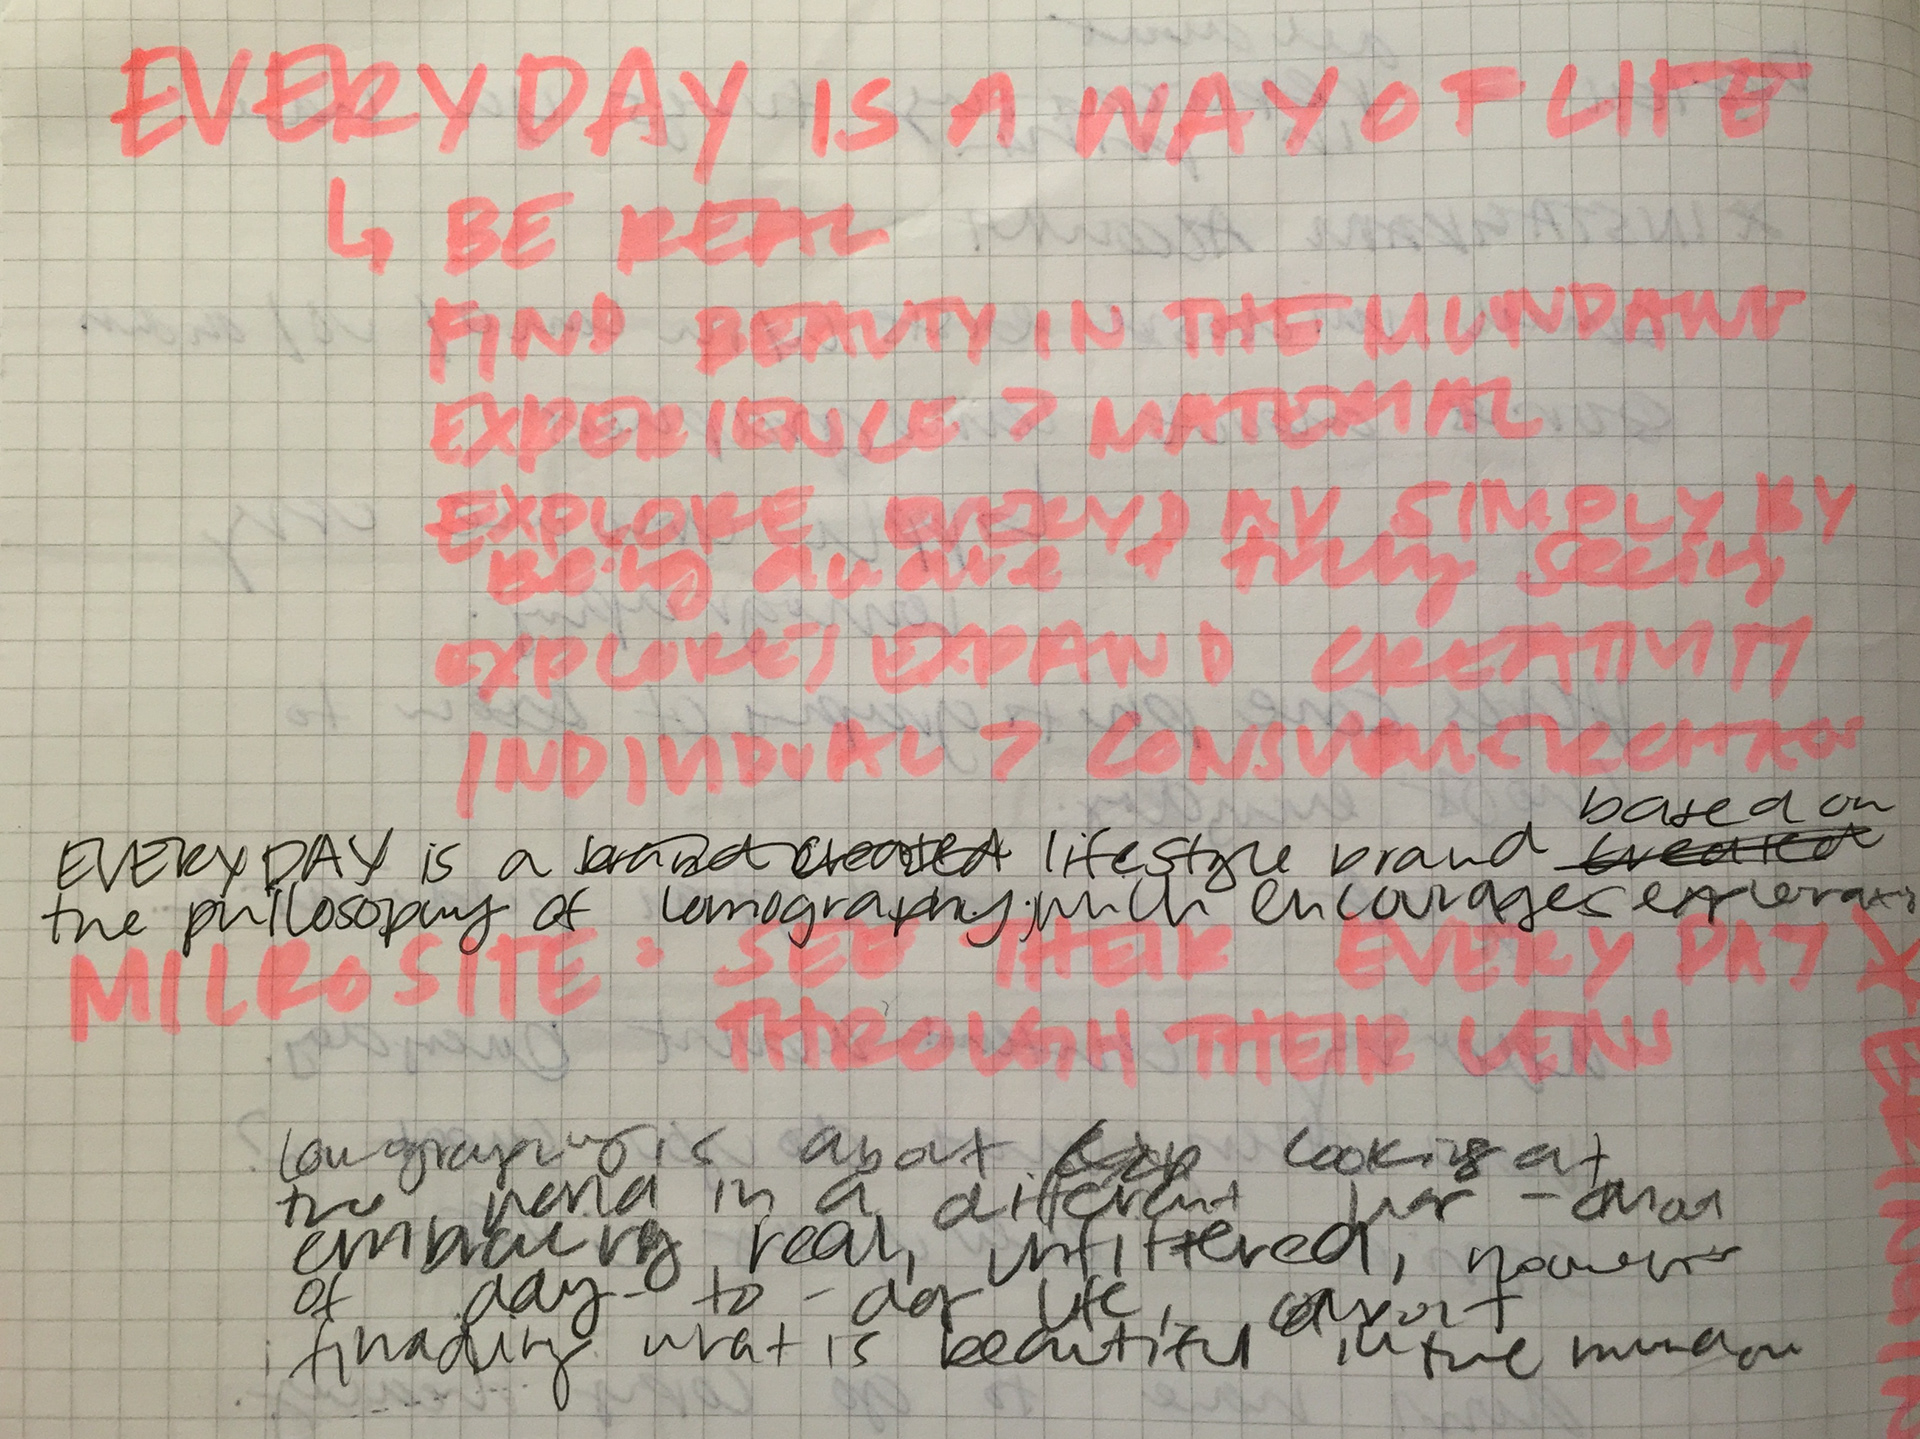 EVERYDAY IS A WAY OF LIFE
↳ BE REAL
FIND BEAUTY IN THE MUNDANE
EXPERIENCE > MATERIAL
EXPLORE EVERYDAY SIMPLY BY
Being aware + truly seeing
EXPLORE/EXPAND CREATIVITY
INDIVIDUAL >
based on
EVERYDAY is a brand created lifestyle brand created
the philosophy of lomography, which encourages
MICROSITE: SEE THEIR EVERY DAY
THROUGH THEIR LENS
lomography is about looking at
the world in a different
embracing real, unfiltered,
of day-to-day life,
finading what is beautiful in the